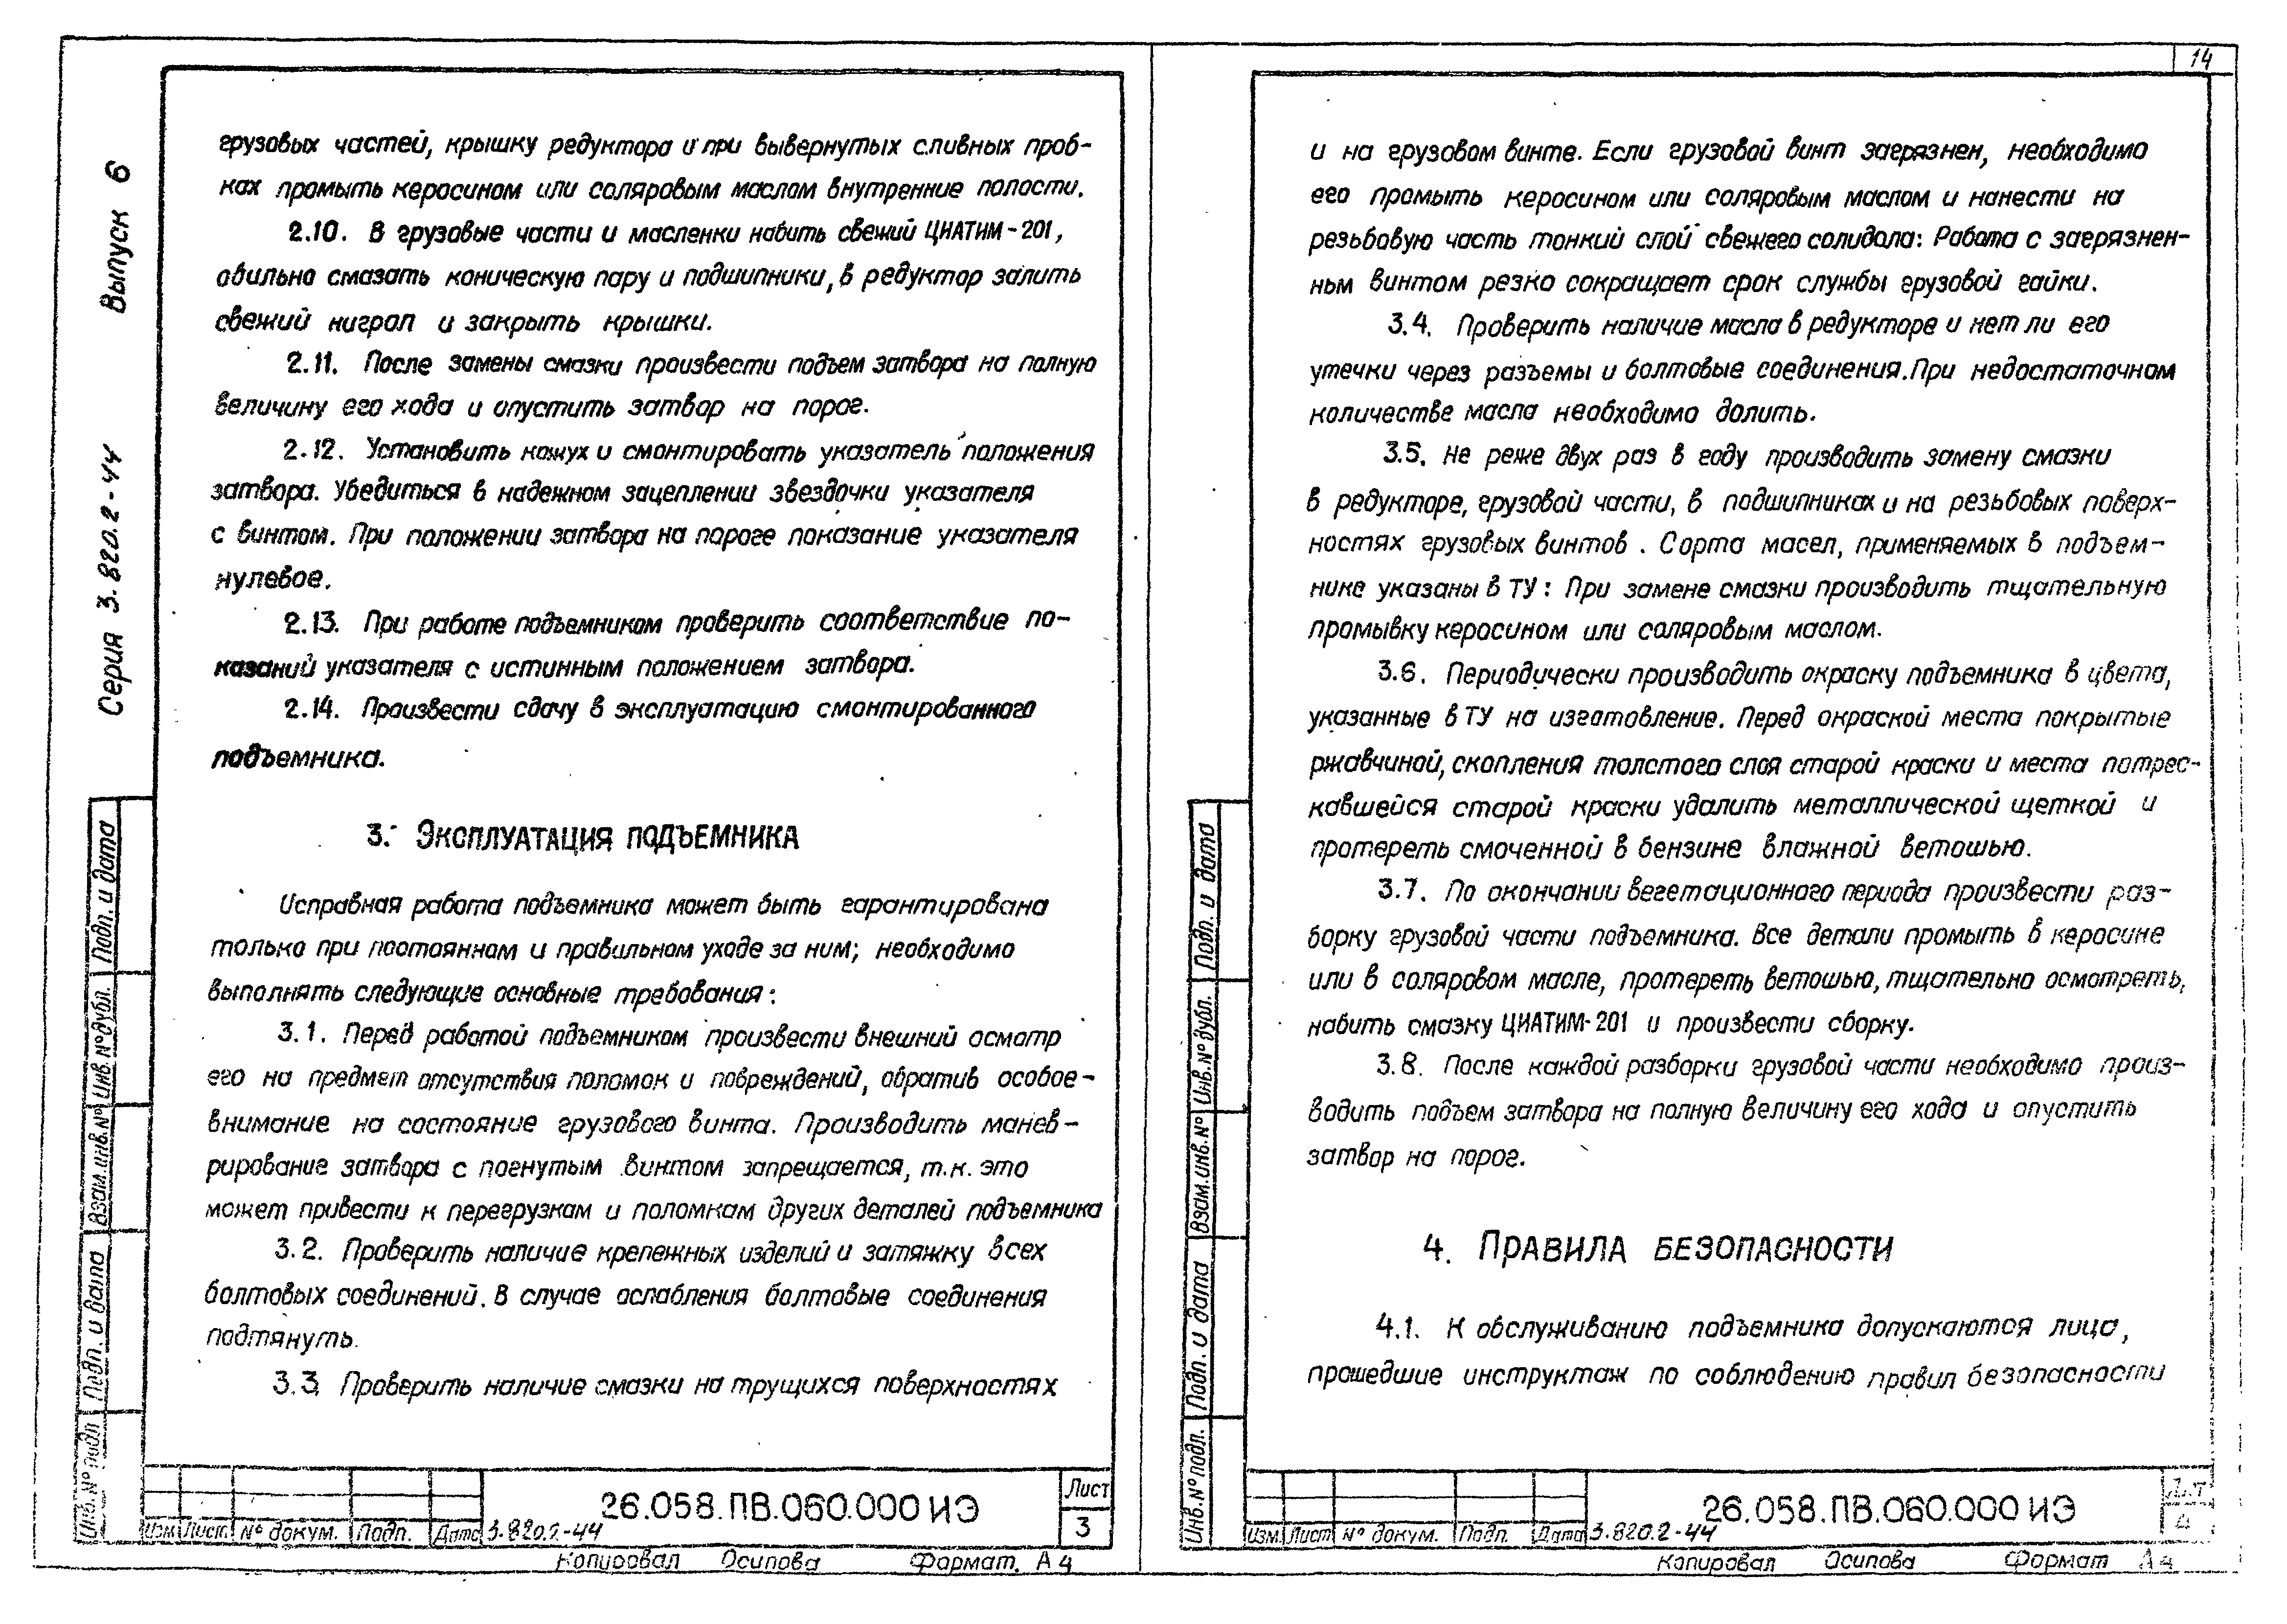 14
Серия 3.820.2-44 Выпуск 6
грузовых частей, крышку редуктора и при вывернутых сливных проб-
ках промыть керосином или соляровым маслом внутренние полости.
2.10. В грузовые части и масленки набить свежий ЦИАТИМ-201,
обильно смазать коническую пару и подшипники, в редуктор залить
свежий нигрол и закрыть крышки.
2.11. После замены смазки произвести подъем затвора на полную
величину его хода и опустить затвор на порог.
2.12. Установить кожух и смонтировать указатель положения
затвора. Убедиться в надежном зацеплении звездочки указателя
с винтом. При положении затвора на пороге показание указателя
нулевое.
2.13. При работе подъемником проверить соответствие по-
казаний указателя с истинным положением затвора.
2.14. Произвести сдачу в эксплуатацию смонтированного
подъемника.
3. Эксплуатация подъемника
Исправная работа подъемника может быть гарантирована
только при постоянном и правильном уходе за ним; необходимо
выполнять следующие основные требования:
3.1. Перед работой подъемником произвести внешний осмотр
его на предмет отсутствия поломок и повреждений, обратив особое-
внимание на состояние грузового винта. Производить манев-
рирование затвора с погнутым винтом запрещается, т.к. это
может привести к перегрузкам и поломкам других деталей подъемника
3.2. Проверить наличие крепежных изделий и затяжку всех
болтовых соединений. В случае ослабления болтовые соединения
подтянуть.
3.3. Проверить наличие смазки на трущихся поверхностях
Подп. и дата
Инв.№ дубл.
Взам.инв.№
Подп. и дата
Инв.№ подл
Изм Лист № докум. Подп. Дата 3.820.2-44
26.058.ПВ.060.000 ИЭ
Лист
3
Копировал Осипова Формат. А4
и на грузовом винте. Если грузовой винт загрязнен, необходимо
его промыть керосином или соляровым маслом и нанести на
резьбовую часть тонкий слой свежего солидола: Работа с загрязнен-
ным винтом резко сокращает срок службы грузовой гайки.
3.4. Проверить наличие масла в редукторе и нет ли его
утечки через разъемы и болтовые соединения. При недостаточном
количестве масла необходимо долить.
3.5. Не реже двух раз в году производить замену смазки
в редукторе, грузовой части, в подшипниках и на резьбовых поверх-
ностях грузовых винтов. Сорта масел, применяемых в подъем-
нике указаны в ТУ: При замене смазки производить тщательную
промывку керосином или соляровым маслом.
3.6. Периодически производить окраску подъемника в цвета,
указанные в ТУ на изготовление. Перед окраской места покрытые
ржавчиной, скопления толстого слоя старой краски и места потрес-
кавшейся старой краски удалить металлической щеткой и
протереть смоченной в бензине влажной ветошью.
3.7. По окончании вегетационного периода произвести раз-
борку грузовой части подъемника. Все детали промыть в керосине
или в соляровом масле, протереть ветошью, тщательно осмотреть,
набить смазку ЦИАТИМ-201 и произвести сборку.
3.8. После каждой разборки грузовой части необходимо произ-
водить подъем затвора на полную величину его хода и опустить
затвор на порог.
4. Правила безопасности
4.1. К обслуживанию подъемника допускаются лица,
прошедшие инструктаж по соблюдению правил безопасности
Подп. и дата
Инв.№ дубл.
Взам.инв.№
Подп. и дата
Инв.№ подл.
Изм. Лист № докум. Подп. Дата 3.820.2-44
26.058.ПВ.060.000 ИЭ
Лист
4
Копировал Осипова Формат А4